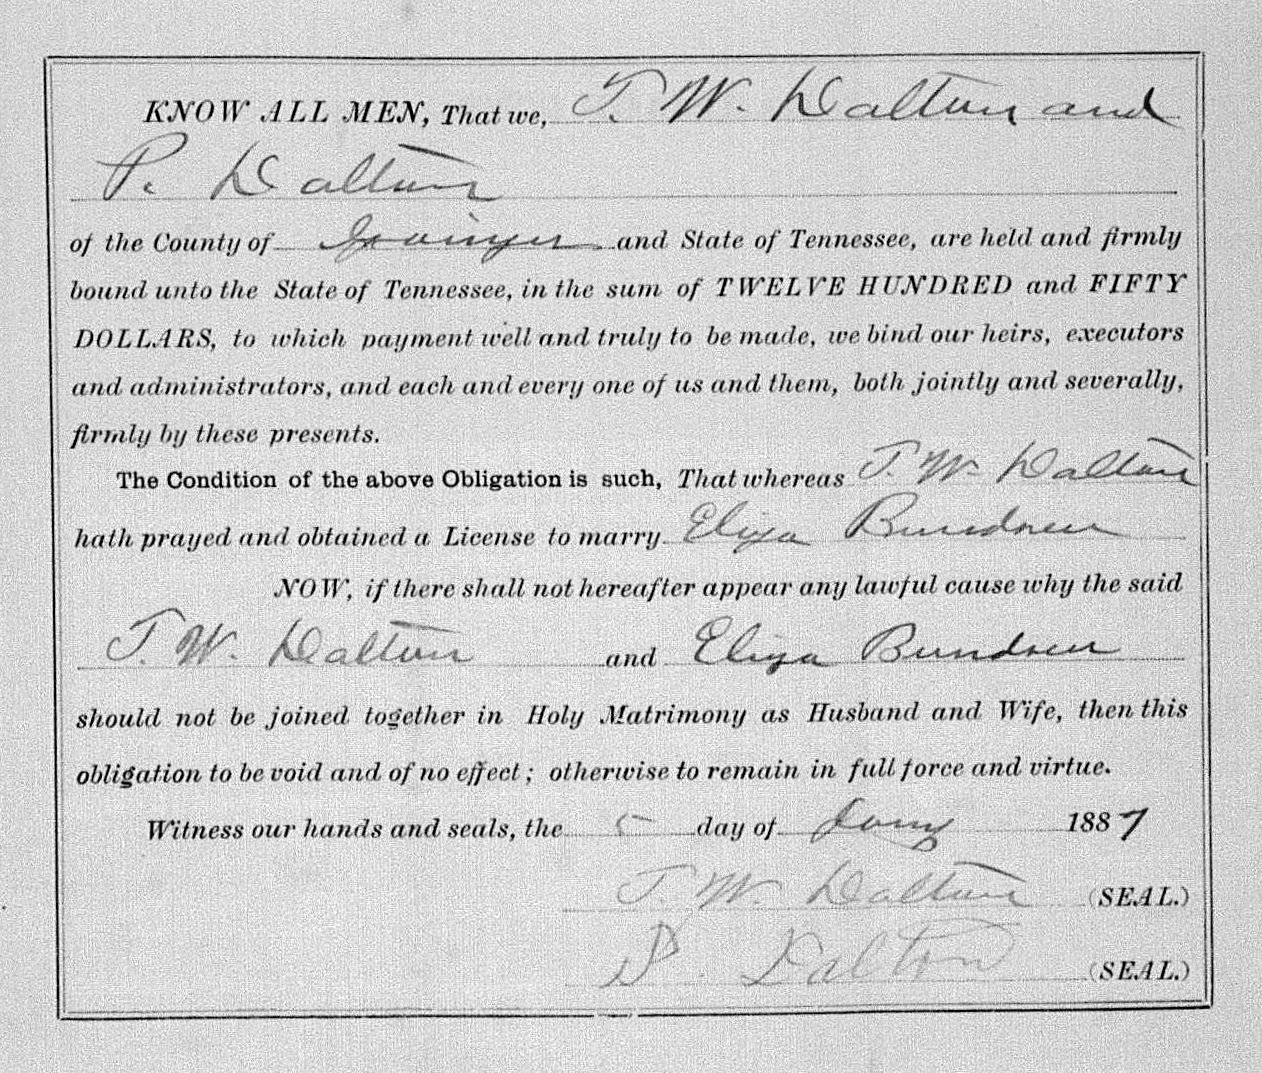 KNOW ALL MEN, That we, T. W. Dalton and
P. Dalton
of the County of Grainger and State of Tennessee, are held and firmly
bound unto the State of Tennessee, in the sum of TWELVE HUNDRED and FIFTY
DOLLARS, to which payment well and truly to be made, we bind our heirs, executors
and administrators, and each and every one of us and them, both jointly and severally,
firmly by these presents.
The Condition of the above Obligation is such, That whereas T. W. Dalton
hath prayed and obtained a License to marry Eliza Bundren
NOW, if there shall not hereafter appear any lawful cause why the said
T. W. Dalton and Eliza Bundren
should not be joined together in Holy Matrimony as Husband and Wife, then this
obligation to be void and of no effect; otherwise to remain in full force and virtue.
Witness our hands and seals, the 5 day of Jany 1887
T. W. Dalton (SEAL.)
P. Dalton (SEAL.)